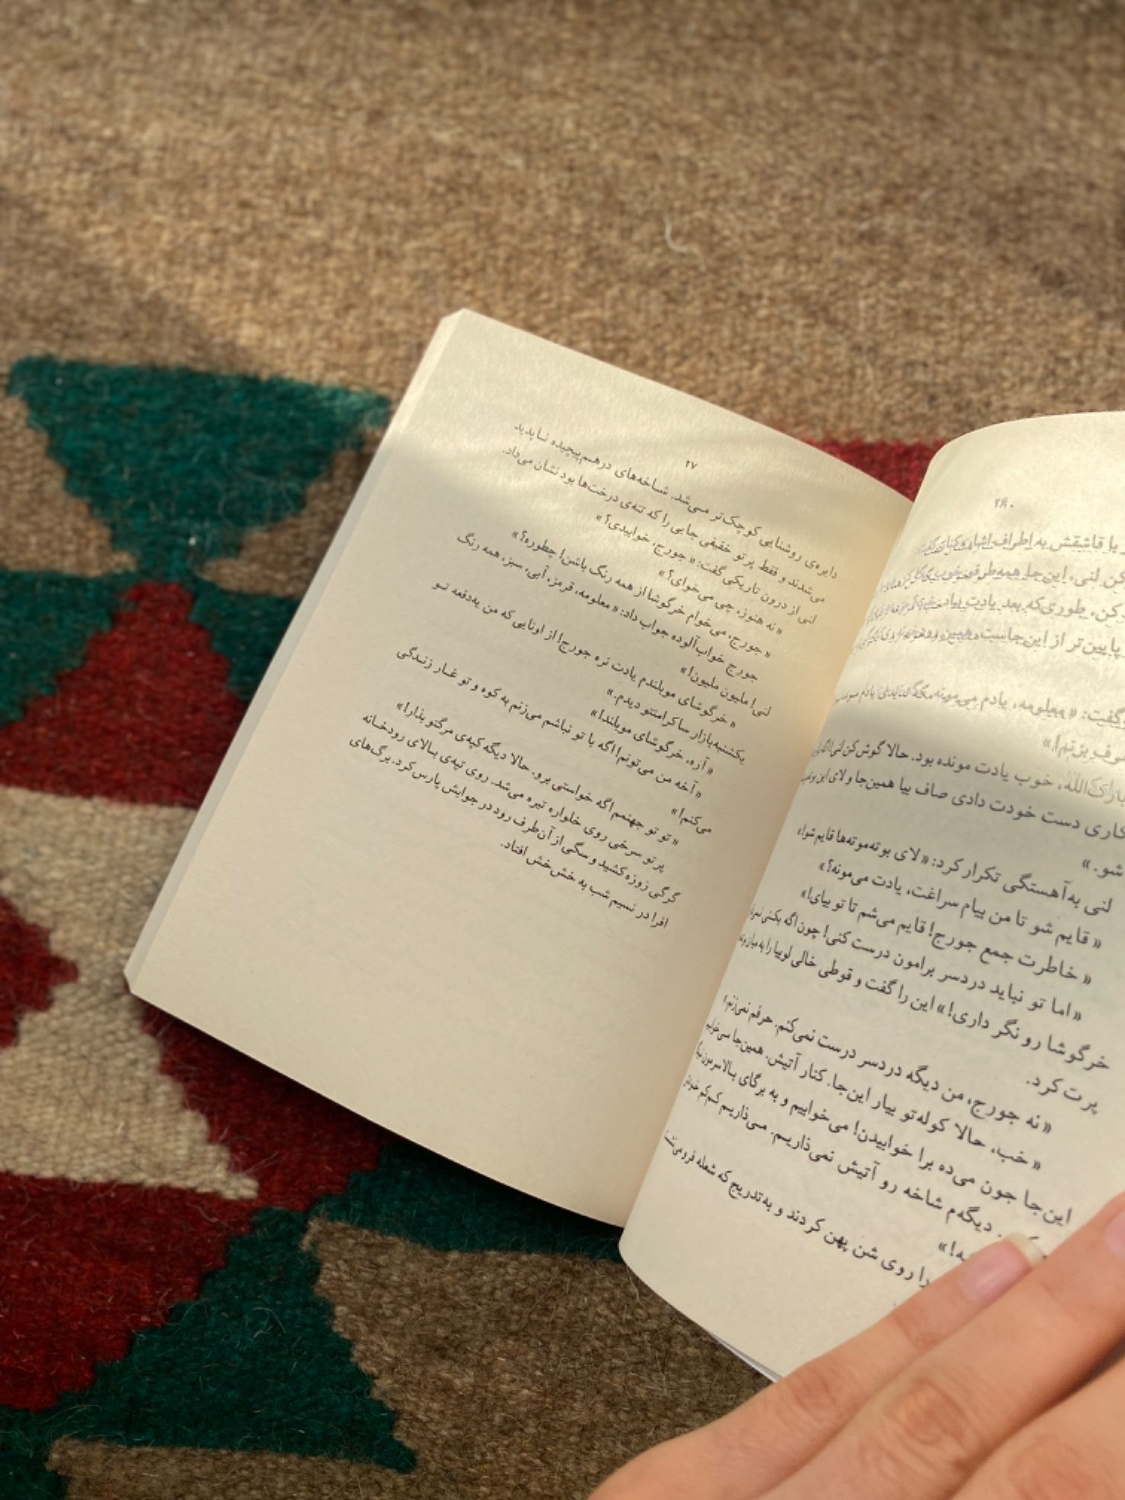 ۲۸۰
با قاشقش به اطراف اشاره
کن لنی، این‌جا همه طرفی خوب نیگا کن
کن، طوری‌که بعد یادت بیاد
پایین‌تر از این‌جاست، همین رودخونه رو
گفت: «معلومه، یادم می‌مونه. مگه
حرف بزنم!»
بارک‌الله، خوب یادت مونده بود. حالا گوش کن لنی! اگه
کاری دست خودت دادی صاف بیا همین‌جا و لای این
شو.»
لنی به‌آهستگی تکرار کرد: «لای بوته‌موته‌ها قایم شو!»
«قایم شو تا من بیام سراغت، یادت می‌مونه؟»
«خاطرت جمع جورج! قایم می‌شم تا تو بیای!»
«اما تو نباید دردسر برامون درست کنی! چون اگه بکنی
خرگوشا رو نگر داری!» این را گفت و قوطی خالی لوبیا را به میان
پرت کرد.
«نه جورج، من دیگه دردسر درست نمی‌کنم. حرفم نمی‌زنم.»
«خب، حالا کوله‌تو بیار این‌جا. کنار آتیش. همین‌جا می‌خوابیم
این‌جا جون می‌ده برا خوابیدن! می‌خوابیم و به برگای بالا سرمون
دیگه‌م شاخه رو آتیش نمی‌ذاریم. می‌ذاریم کم‌کم
را روی شن پهن کردند و به‌تدریج که شعله فرو می‌نشست
۲۷
دایره‌ی روشنایی کوچک‌تر می‌شد. شاخه‌های درهم‌پیچیده ناپدید
می‌شدند و فقط پرتو خفیفی جایی را که تنه‌ی درخت‌ها بود نشان می‌داد.
لنی از درون تاریکی گفت: «جورج، خوابیدی؟»
«نه هنوز، چی می‌خوای؟»
«جورج، می‌خوام خرگوشا از همه رنگ باشن! چطوره؟»
جورج خواب‌آلوده جواب داد: «معلومه، قرمز، آبی، سبز، همه رنگ
لنی! ملیون ملیون!»
«خرگوشای موبلندم یادت نره جورج! از اونایی که من یه‌دفعه تو
یکشنبه‌بازار ساکرامنتو دیدم.»
«آره، خرگوشای موبلند!»
«آخه من می‌تونم! اگه با تو نباشم می‌زنم به کوه و تو غار زندگی
می‌کنم!»
«تو تو جهنمم اگه خواستی برو. حالا دیگه کپه‌ی مرگتو بذار!»
پرتو سرخی روی خلواره تیره می‌شد. روی تپه‌ی بالای رودخانه
گرگی زوزه کشید و سگی از آن‌طرف رود در جوابش پارس کرد. برگ‌های
افرا در نسیم شب به خش‌خش افتاد.